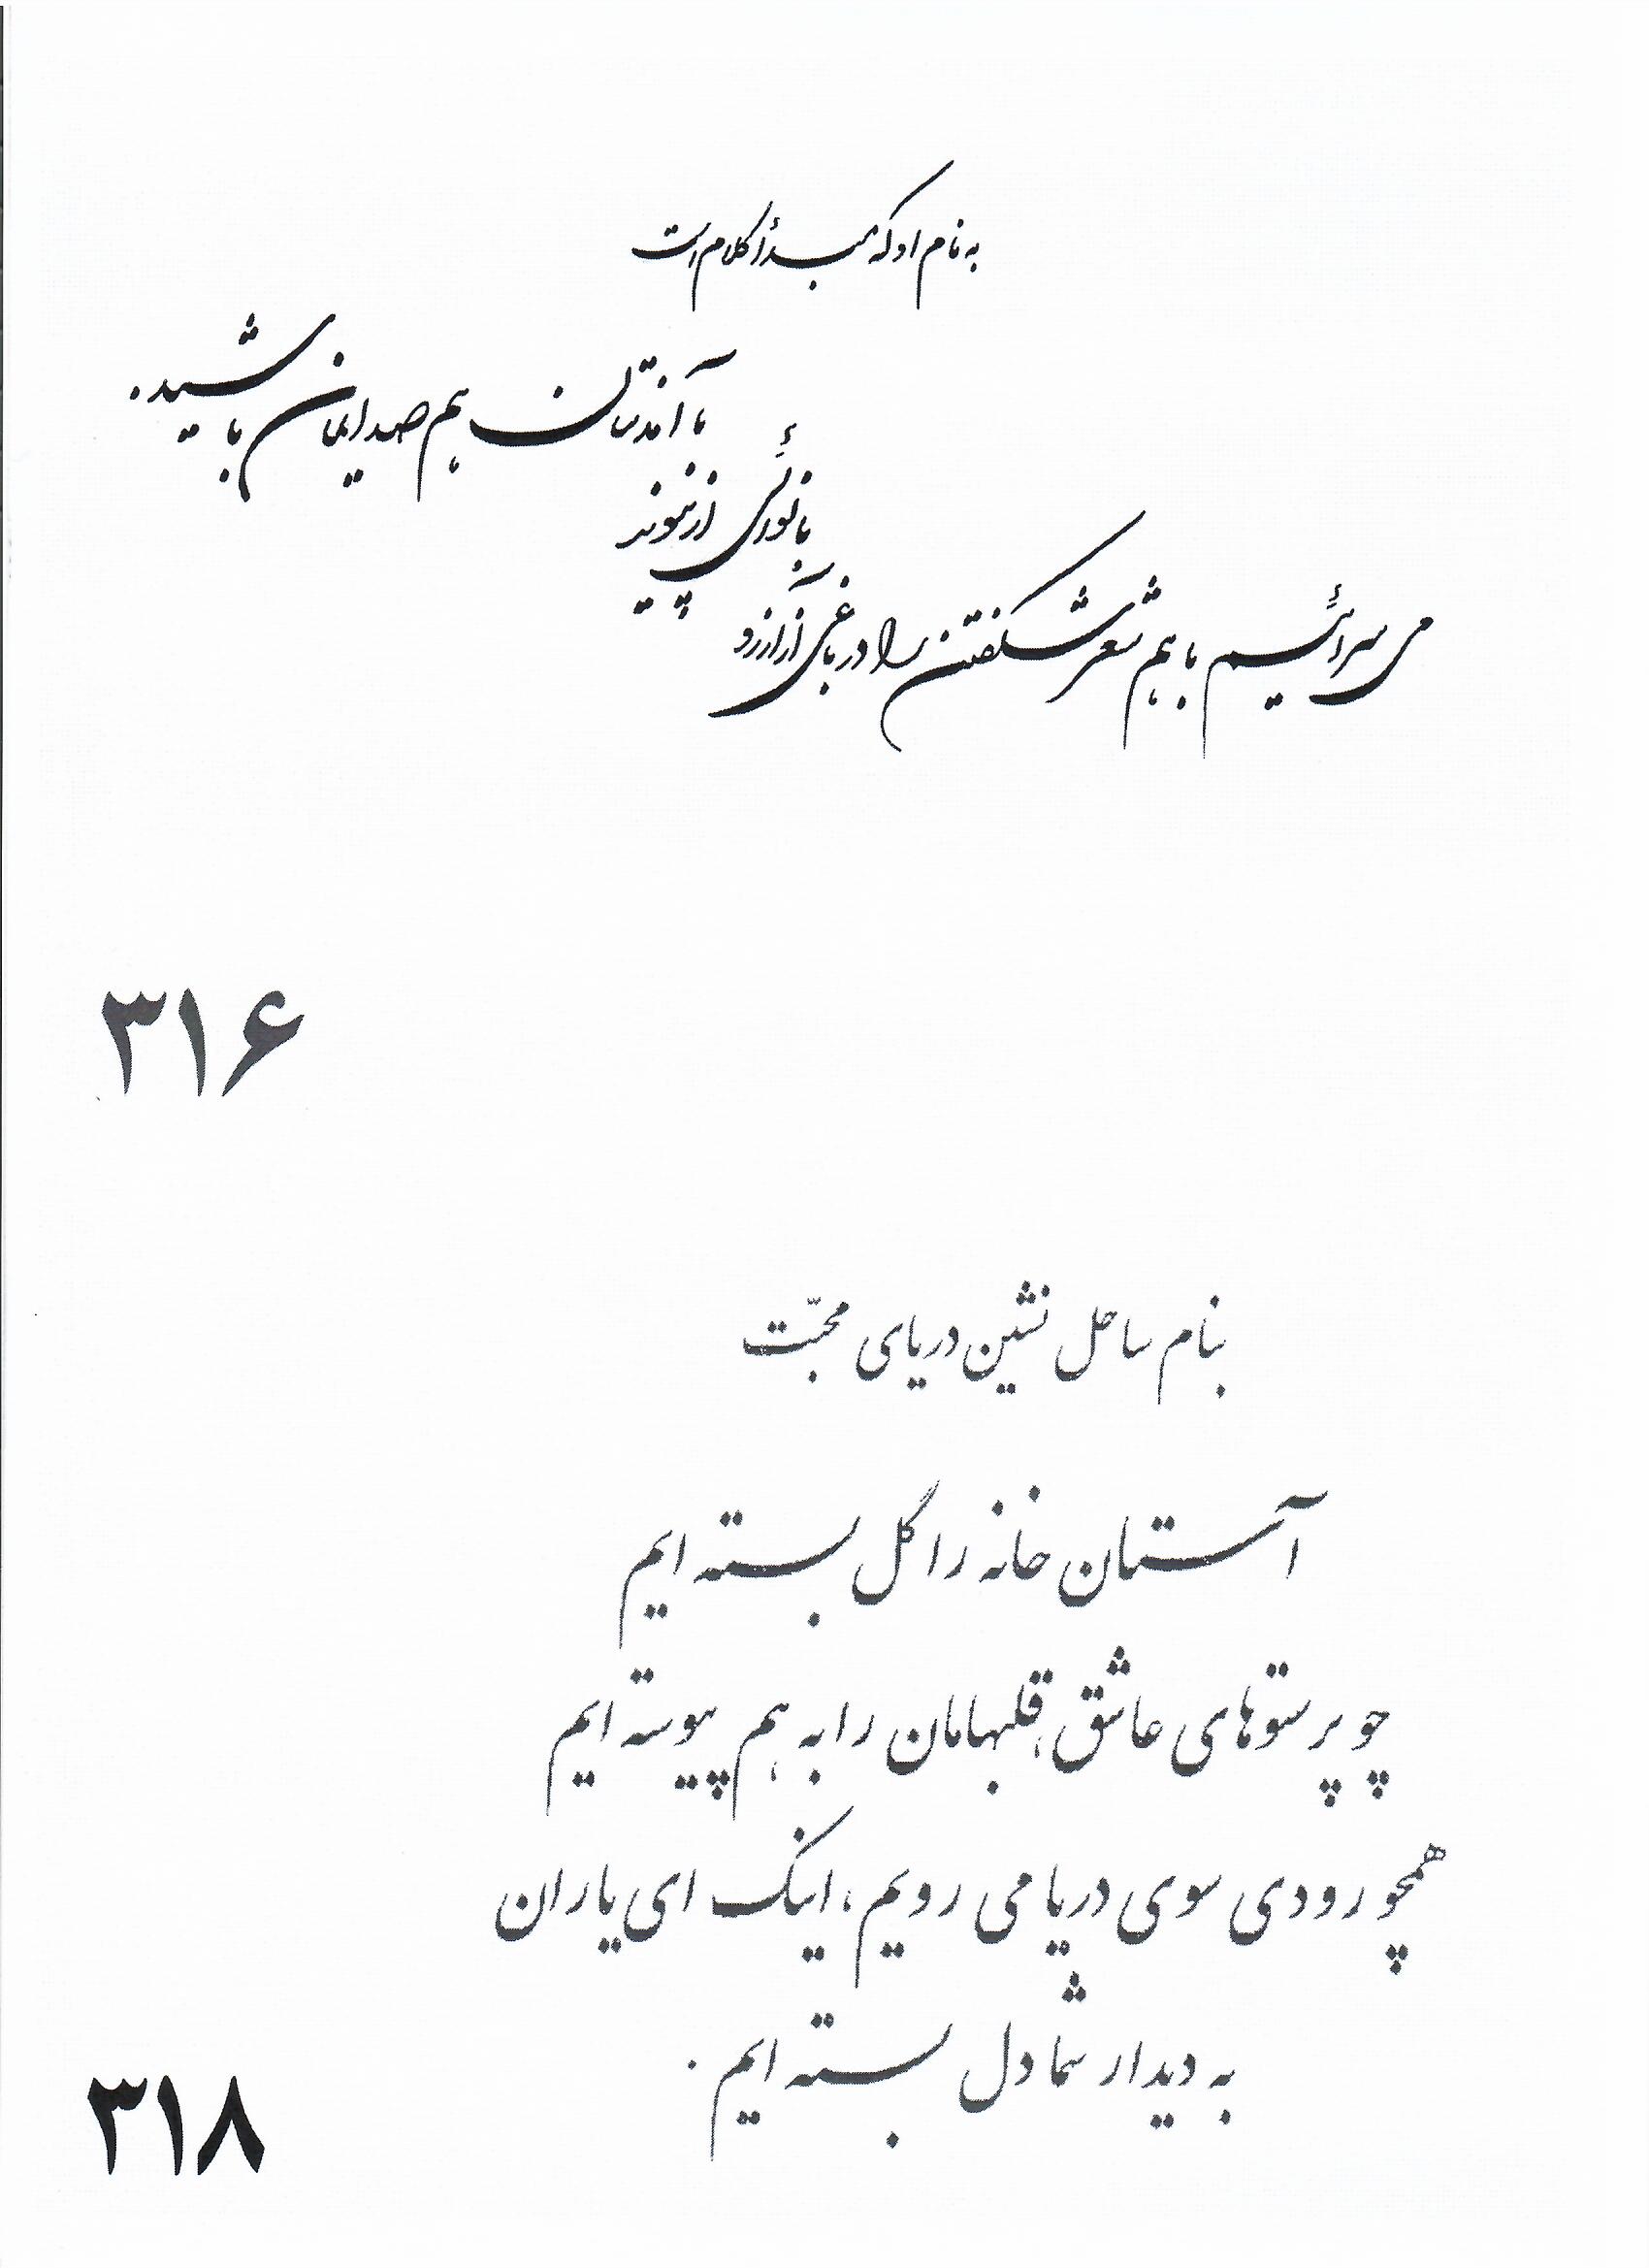 به نام او که مبدأ کلام است
می سرائیم با هم شعر شکفتن را در باغی از آرزو
با نوائی از پیوند
با آمدنتان هم صدایمان باشید.
۳۱۶
بنام ساحل نشین دریای محبّت
آستان خانه را گل بسته ایم
چو پرستوهای عاشق، قلبهامان را به هم پیوسته ایم
همچو رودی سوی دریا می رویم، اینک ای یاران
به دیدار شما دل بسته ایم.
۳۱۸